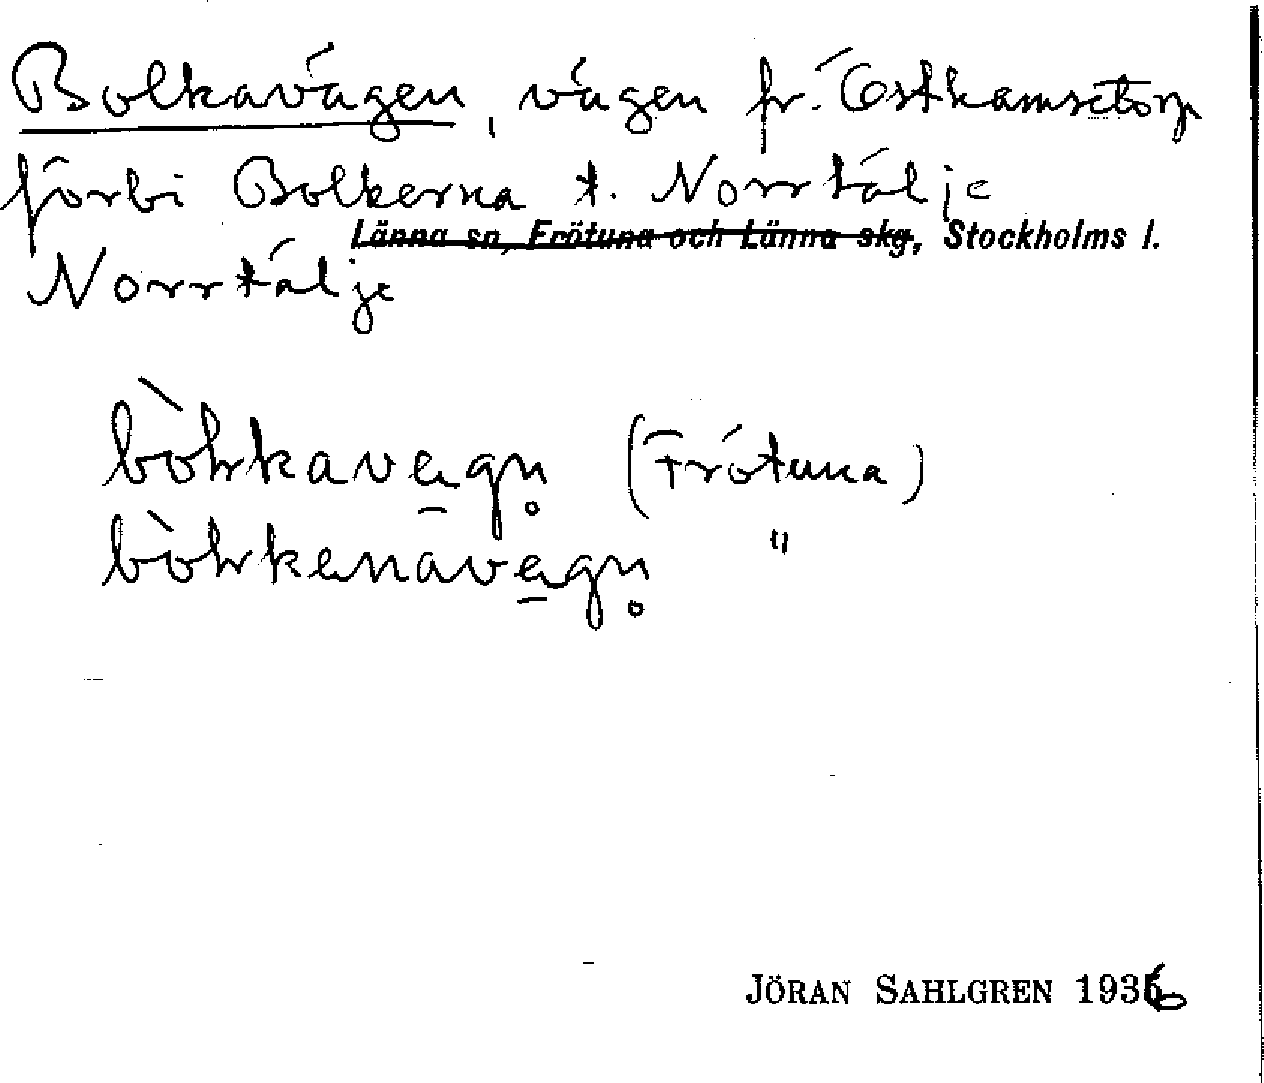 Bolkavägen, vägen fr. Östhamsetorp
förbi Bolkerna t. Norrtälje
Länna sn, Frötuna och Länna skg, Stockholms l.
Norrtälje
(Frötuna)
"
JÖRAN SAHLGREN 1936